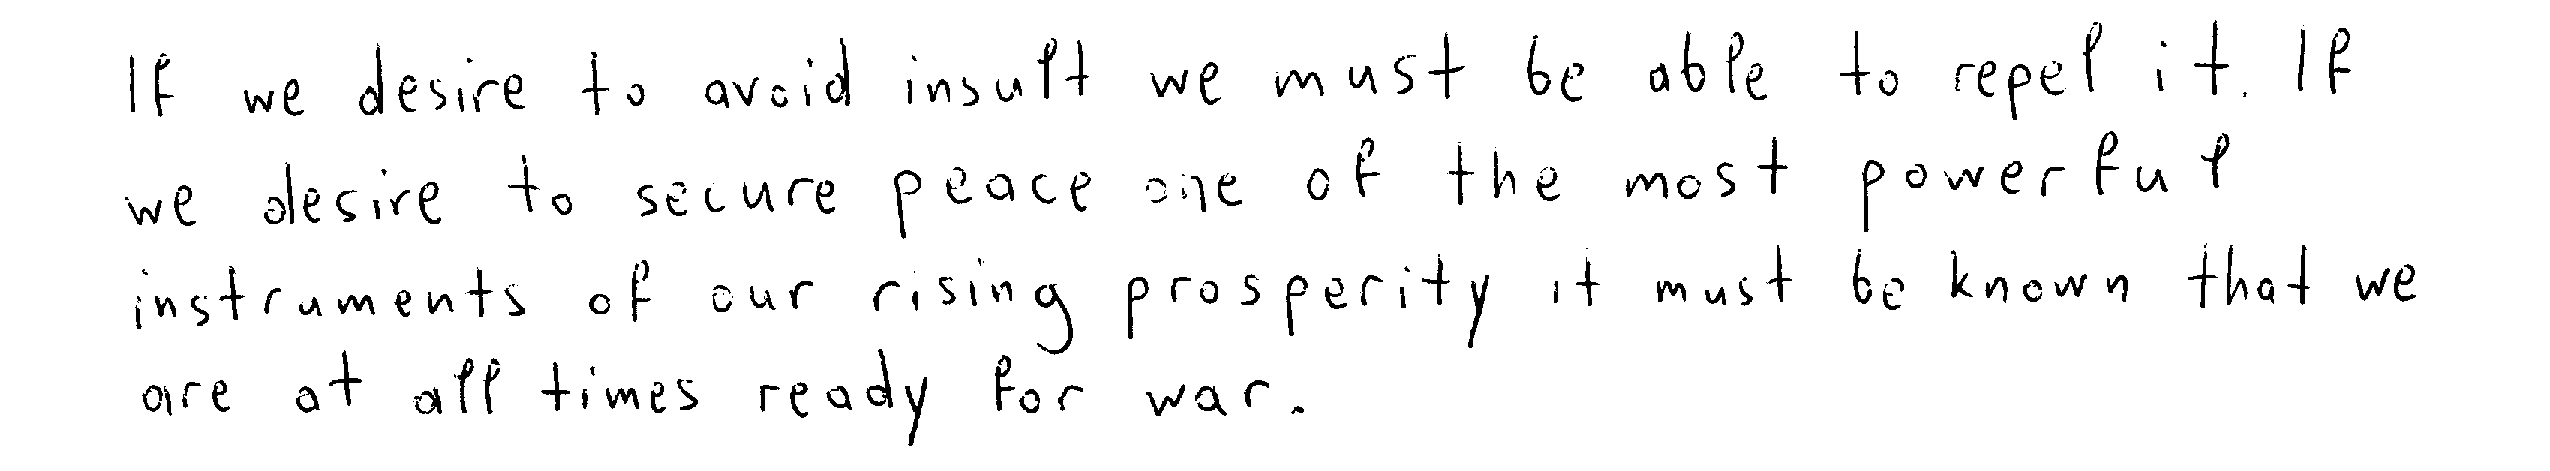 If we desire to avoid insult we must be able to repel it. If
we desire to secure peace one of the most powerful
instruments of our rising prosperity it must be known that we
are at all times ready for war.